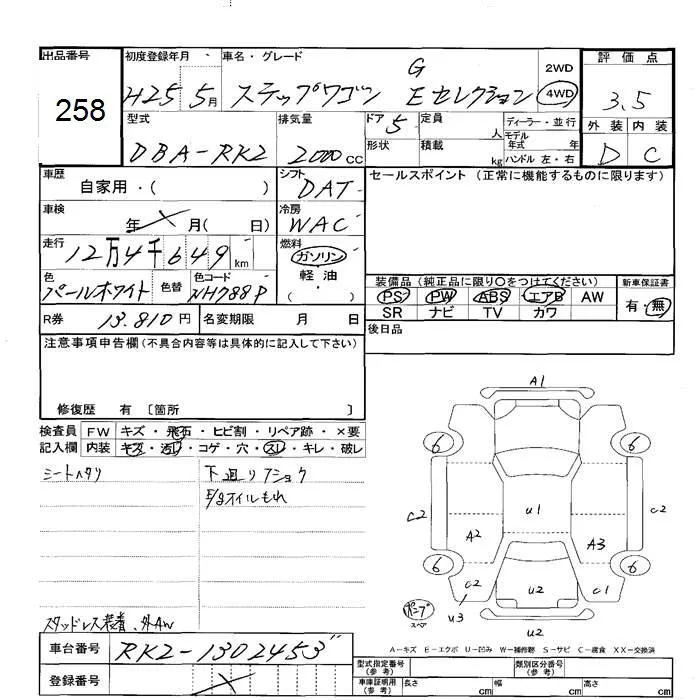 出品番号
258
初度登録年月
H25 5月
車名・グレード
ステップワゴン G Eセレクション
2WD
4WD
評価点
3.5
外装 内装
D C
型式
DBA-RK2
排気量
2000 cc
ドア 5
定員 人
形状
積載 kg
ディーラー・並行
モデル年式 年
ハンドル 左・右
車歴
自家用・( )
シフト
DAT
セールスポイント (正常に機能するものに限ります)
車検
年 月( 日)
冷房
WAC
走行
12万4千649km
燃料
ガソリン
軽油
( )
色
パールホワイト
色替
色コード
NH788P
装備品 (純正品に限り○をつけてください)
PS PW ABS エアB AW
SR ナビ TV カワ
新車保証書
有・無
R券 13.810円
名変期限 月 日
後日品
注意事項申告欄 (不具合内容等は具体的に記入して下さい)
修復歴 有 〔箇所 〕
検査員記入欄
FW キズ・飛石・ヒビ割・リペア跡・×要
内装 キズ・汚レ・コゲ・穴・スレ・キレ・破レ
シートヘタリ
下廻リフショク
E/gオイルもれ
スタッドレス装着、外AW
A1
6 6
C2 A2 u1 A3 C2
6 6
C2 u2 C1
u3
u2
パンク
スペア
A-キズ E-エクボ U-凹み W-補修跡 S-サビ C-腐食 XX-交換済
車台番号
RK2-1302453"
登録番号
型式指定番号(参考)
類別区分番号(参考)
車庫証明用(参考) 長さ cm 幅 cm 高さ cm